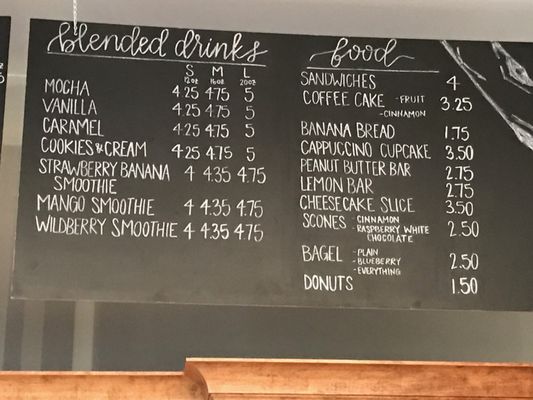 blended drinks
S M L
12oz 16oz 20oz
MOCHA 4.25 4.75 5
VANILLA 4.25 4.75 5
CARAMEL 4.25 4.75 5
COOKIES & CREAM 4.25 4.75 5
STRAWBERRY BANANA 4 4.35 4.75
SMOOTHIE
MANGO SMOOTHIE 4 4.35 4.75
WILDBERRY SMOOTHIE 4 4.35 4.75
food
SANDWICHES 4
COFFEE CAKE - FRUIT 3.25
- CINNAMON
BANANA BREAD 1.75
CAPPUCCINO CUPCAKE 3.50
PEANUT BUTTER BAR 2.75
LEMON BAR 2.75
CHEESECAKE SLICE 3.50
SCONES - CINNAMON 2.50
- RASPBERRY WHITE
CHOCOLATE
BAGEL - PLAIN 2.50
- BLUEBERRY
- EVERYTHING
DONUTS 1.50